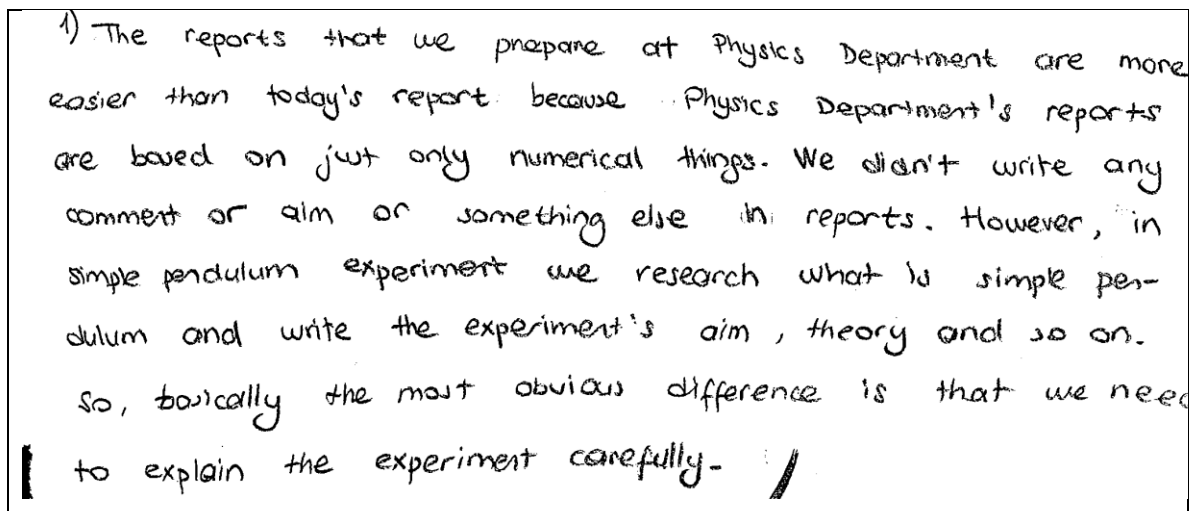 1) The reports that we prepare at Physics Department are more
easier than today's report because Physics Department's reports
are based on just only numerical things. We didn't write any
comment or aim or something else in reports. However, in
simple pendulum experiment we research what is simple pen-
dulum and write the experiment's aim, theory and so on.
So, basically the most obvious difference is that we need
to explain the experiment carefully.